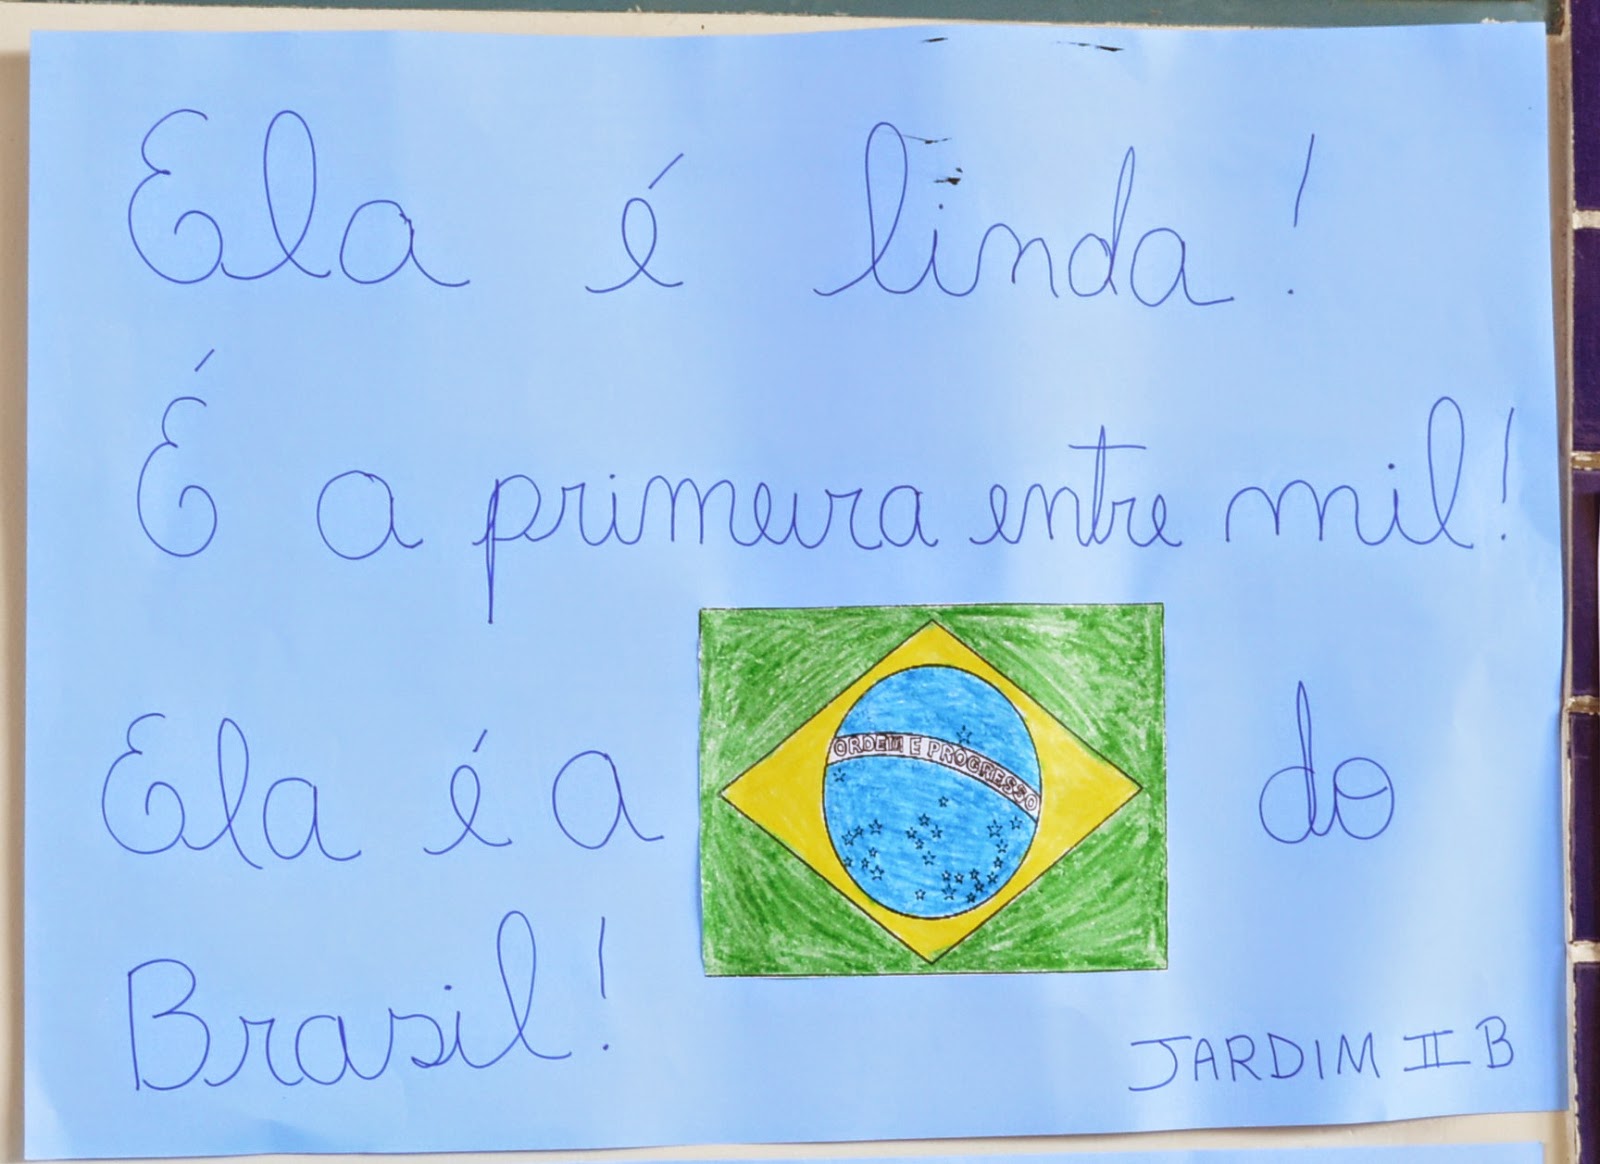 Ela é linda!
É a primeira entre mil!
Ela é a do
ORDEM E PROGRESSO
Brasil!
JARDIM II B